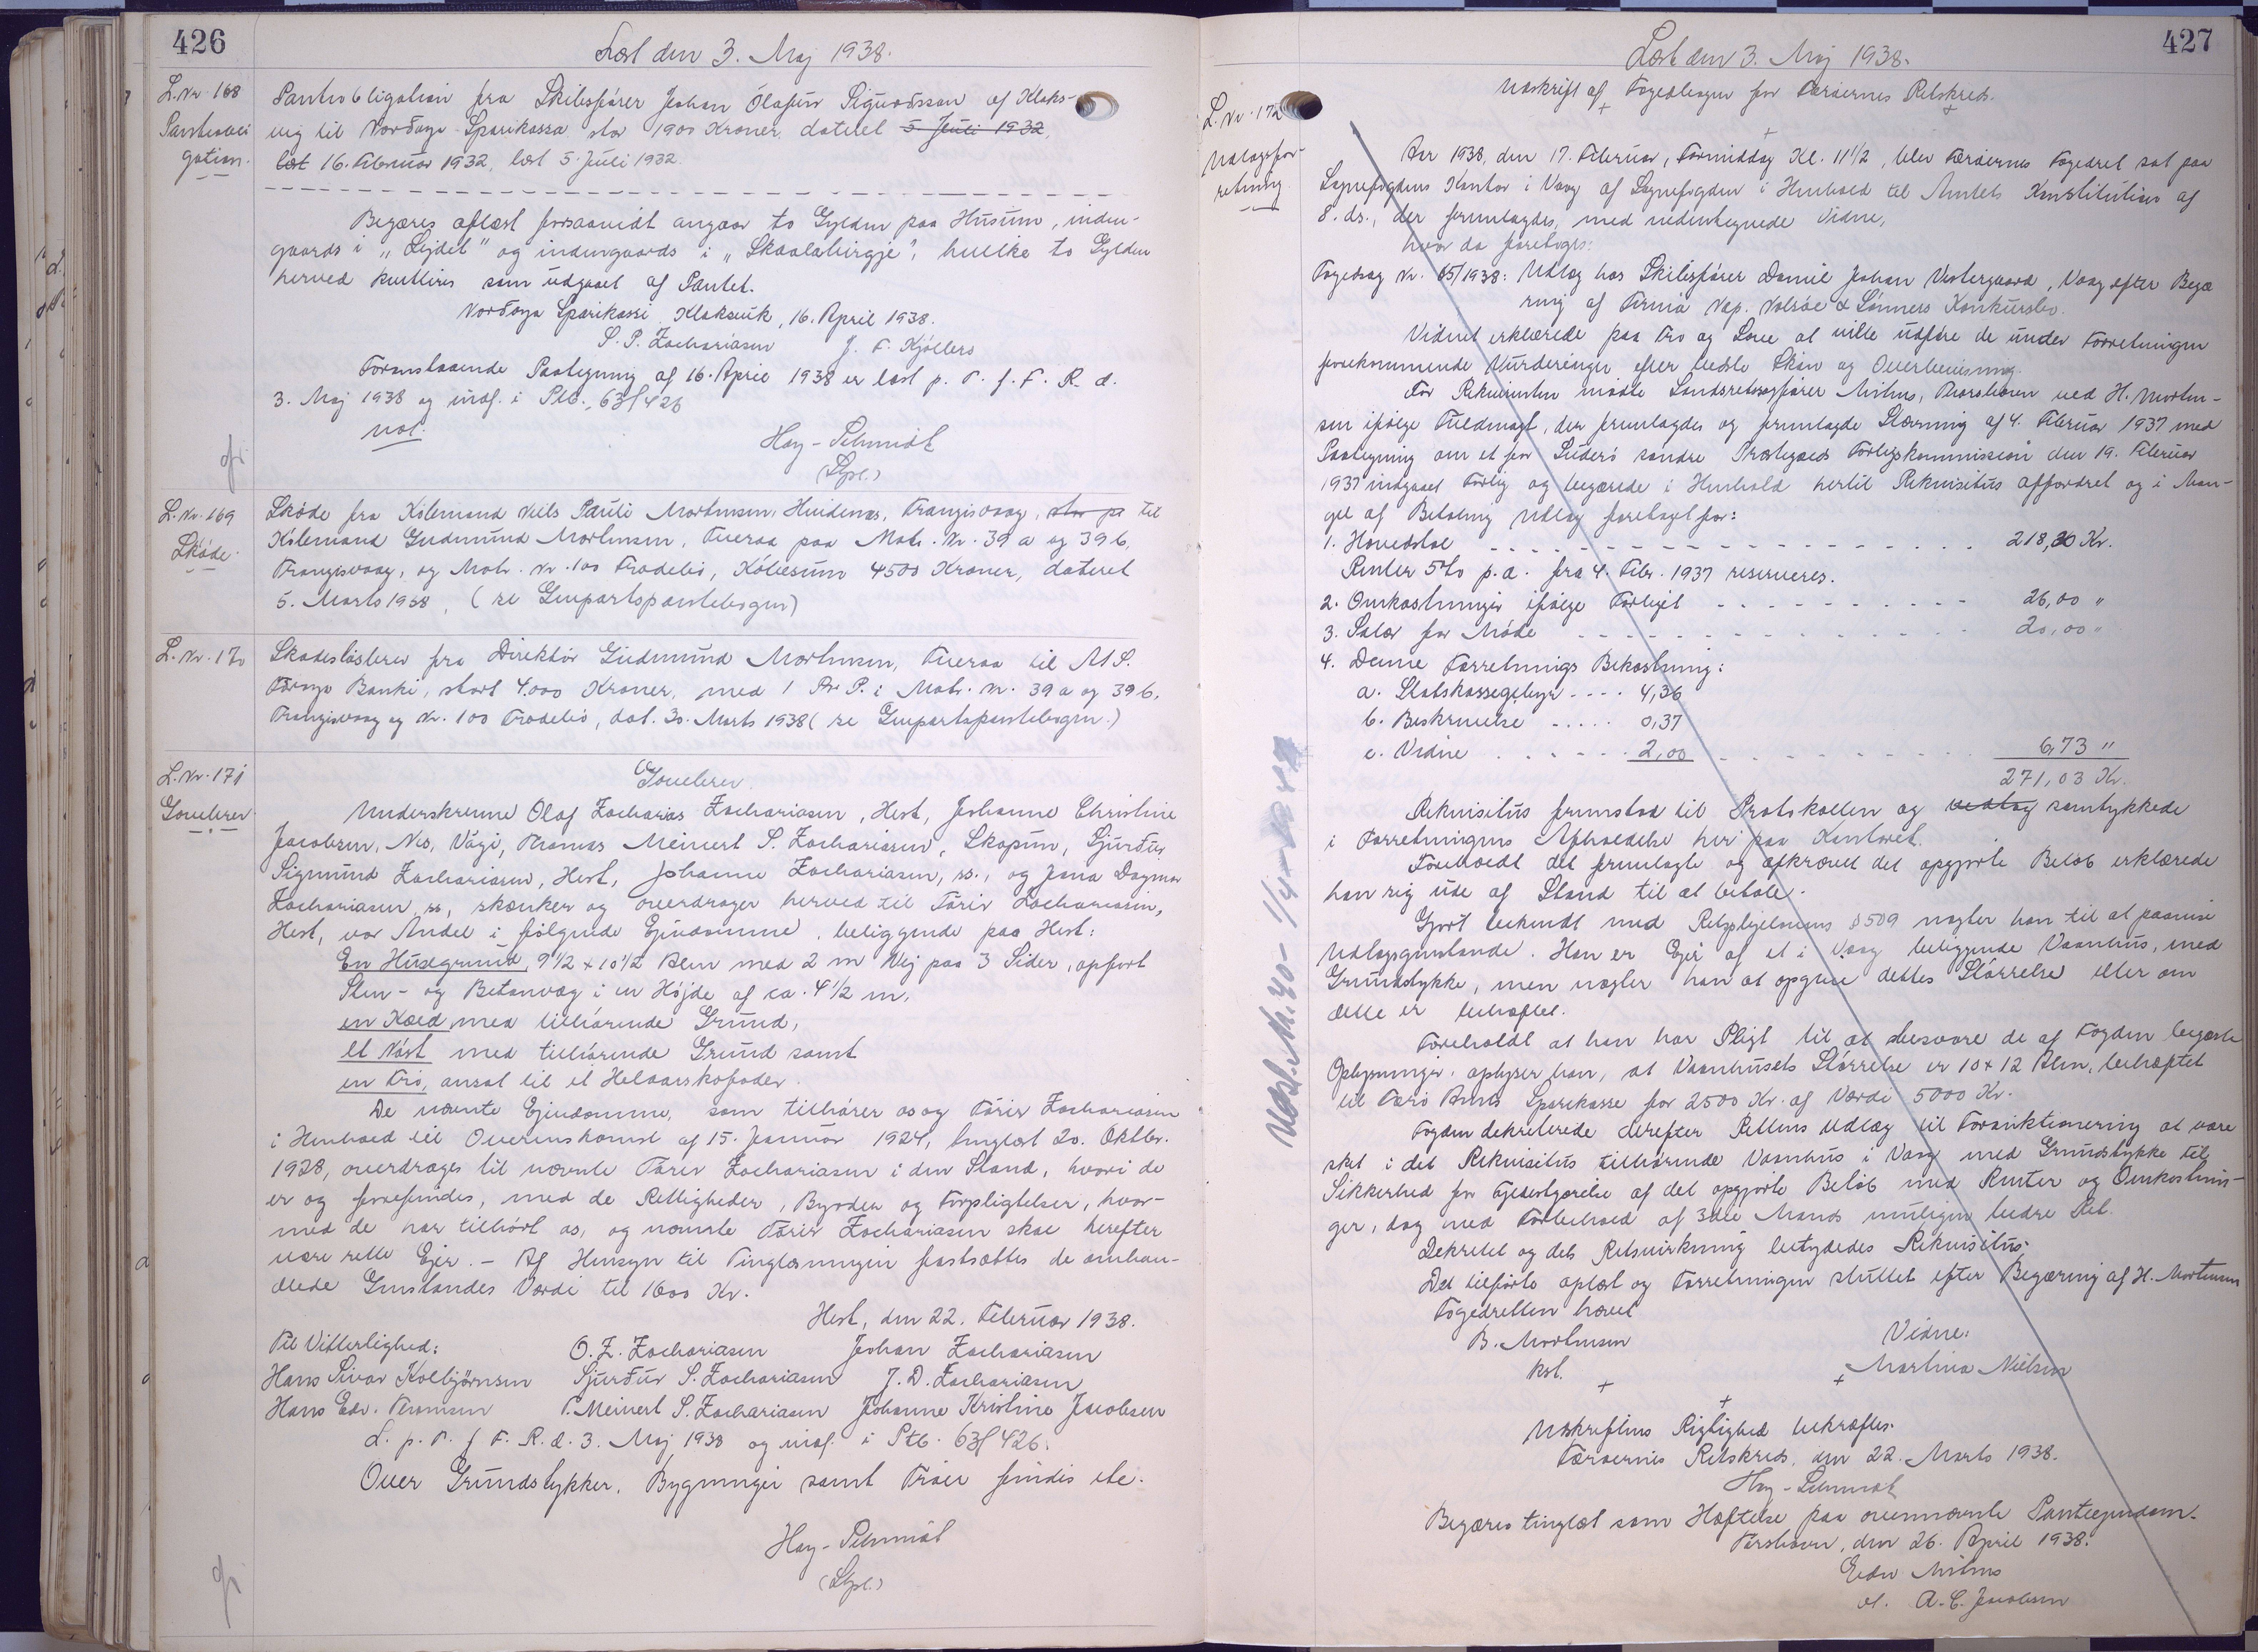 426
Læst den 3. Maj 1938.
L. Nr. 168
Pantobli
gation.
Pantobligation fra Skibsfører Johan Ólafur Sigurðsson af Klaks-
vig til Norðoya Sparikassa stor 1900 Kroner, dateret 5 Juli 1932,
læst 16. Februar 1932, læst 5. Juli 1932.
Begæres aflæst forsaavidt angaar to Gylden paa Húsum, inden-
gaards i „Lejdet" og indengaards i „Skaalabirgje", hvilke to Gylden
herved kvitteres som udgaaet af Pantet.
Norðoya Sparikassi, Klaksvík, 16. April 1938.
S. P. Zachariasen J. F. Kjølbro
Foranstaaende Paategning af 16. April 1938 er læst p. T. f. F. R. d.
3. Maj 1938 og indf. i Ptb. 63f 426
not.
Hoy-Schmidt
(Dpl.)
L. Nr. 169
Skøde.
Skøde fra Købmand Niels Pauli Mortensen, Hvidenæs, Trangisvaag, stor pr til
Købmand Gudmund Mortensen, Tveraa paa Matr. Nr. 39 a og 39 b,
Trangisvaag, og Matr. Nr. 100 Frodebø, Købesum 4500 Kroner, dateret
5. Marts 1938, (se Genpartspantebogen)
L. Nr. 170
Skadesløsbrev fra Direktør Gudmund Mortensen, Tveraa til A/S.
Føroya Banki, stort 4.000 Kroner, med 1 Pr. P. i Matr. Nr. 39 a og 39 b,
Trangisvaag og Nr. 100 Frodebø, dat. 30. Marts 1938 (se Genpartspantebogen.)
L. Nr. 171
Gavebrev
Gavebrev
Underskrevne Olaf Zacharias Zachariasen, Hest, Johanne Christine
Jacobsen, Nes, Vági, Thomas Meinert S. Zachariasen, Skopun, Sjurður
Sigmund Zachariasen, Hest, Johanne Zachariasen, ss., og Jona Dagmar
Zachariasen, ss, skænker og overdrager herved til Tórir Zachariasen,
Hest, vor Andel i følgende Ejendomme, beliggende paa Hest:
En Husegrund, 9½ x 10½ Alen med 2 m Vej paa 3 Sider, opført
Sten- og Betonvæg i en Højde af ca. 4½ m,
en Kæld med tilhørende Grund,
et Nøst med tilhørende Grund samt
en Trø, ansat til et Helaarskofoder.
De nævnte Ejendomme, som tilhører os og Tórir Zachariasen
i Henhold til Overenskomst af 15. Januar 1924, tinglæst 20. Oktbr.
1928, overdrages til nævnte Tórir Zachariasen i den Stand, hvori de
er og forefindes, med de Rettigheder, Byrder og Forpligtelser, hvor-
med de har tilhørt os, og nævnte Tórir Zachariasen skal herefter
være rette Ejer. - Af Hensyn til Tinglæsningen fastsættes de omhan-
dlede Genstandes Værdi til 1600 Kr.
Hest, den 22. Februar 1938.
Til Vitterlighed:
O. Z. Zachariasen Johan Zachariasen
Hans Sivar Kolbjørnsen Sjurður S. Zachariasen J. D. Zachariasen
Hans Edv. Thomsen T. Meinert S. Zachariasen Johanne Kristine Jacobsen
L. p. T. f F. R. d. 3. Maj 1938 og indf. i Ptb. 63f 426.
Over Grundstykker, Bygninger samt Trøer findes ete.
Hoy-Schmidt
(Dpl.)
427
Læst den 3. Maj 1938.
L. Nr. 172
Udlægsfor-
retning.
Udskrift af Fogedbogen for Færøernes Retskreds.
Aar 1938, den 17. Februar, Formiddag Kl. 11½, blev Færøernes Fogedret sat paa
Sognefogdens Kontor i Vaag af Sognefogden i Henhold til Amtets Konstitution af
8. ds., der fremlagdes, med nedentegnede Vidne,
hvor da foretoges:
Fogedsag Nr. 15/1938: Udlæg hos Skibsfører Daniel Johan Vestergaard, Vaag efter Begæ
ring af Firma Nap. Volrøe & Sønners Konkursbo.
Vidnet erklærede paa Tro og Love at ville udføre de under Forretningen
forekommende Vurderinger efter bedste Skøn og Overbevisning.
For Rekvirenten mødte Landsretssagfører Mitens, Thorshavn ved H. Morten-
sen ifølge Fuldmagt, der fremlagdes og fremlagde Stævning af 4. Februar 1937 med
Paategning om et for Suderø søndre Præstegælds Forligskommission den 19. Februar
1937 indgaaet Forlig og begærede i Henhold hertil Rekvisitus affordret og i Man-
gel af Betaling Udlæg foretaget for:
1. Hovedstol 218,30 Kr.
Renter 5% p.a. fra 4. Febr. 1937 reserveres.
2. Omkostninger ifølge Forliget 26,00 "
3. Salær for Møde 20,00 "
4. Denne Forretnings Bekostning:
a. Statskassegebyr 4,36
b. Beskrivelse 0,37
c. Vidne 2,00 6,73 "
271,03 Kr.
Rekvisitus fremstod til Protokollen og vedtog samtykkede
i Forretningens Afholdelse her paa Kontoret.
Foreholdt det fremlagte og afkrævet det opgjorte Beløb erklærede
han sig ude af Stand til at betale.
Gjort bekendt med Retsplejelovens § 509 nægter han til at paavise
Udlægsgenstande. Han er Ejer af et i Vaag beliggende Vaanhus, med
Grundstykke, men nægter han at opgive dettes Størrelse eller om
dette er behæftet.
Foreholdt at han har Pligt til at besvare de af Fogden begærte
Oplysninger, oplyser han, at Vaanhusets Størrelse er 10 x 12 Alen, behæftet
til Færø Amts Sparekasse for 2500 Kr. af Værdi 5000 Kr.
Fogden dekreterede derefter Rettens Udlæg til Forsinktionering at være
sket i det Rekvisitus tilhørende Vaanhus i Vaag med Grundstykke til
Sikkerhed for Fyldestgørelse af det opgjorte Beløb med Renter og Omkostnin-
ger, dog med Forbehold af 3die Mands muligen bedre Ret.
Dekretet og dets Retsvirkning betydedes Rekvisitus.
Det tilførte oplæst og Forretningen sluttet efter Begæring af H. Mortensen
Fogedretten hævet
B. Mortensen
kst.
Vidne:
Martina Nielsen
Udskriftens Rigtighed bekræftes.
Færøernes Retskreds, den 22. Marts 1938.
Hoy-Schmidt
Begæres tinglæst som Hæftelse paa ovennævnte Panteejendom.
Tórshavn, den 26. April 1938.
Edw Mitens
v. A. C. Jacobsen